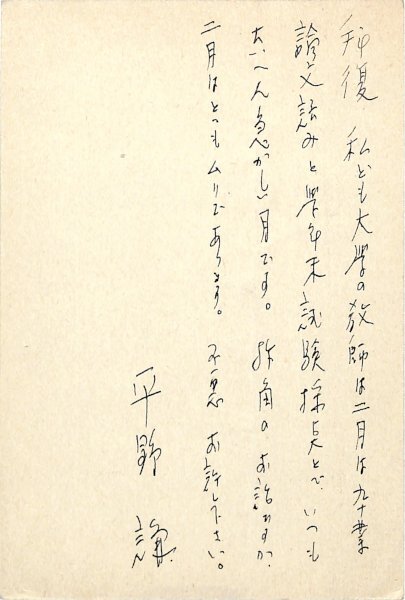 拝復 私ども大学の教師は二月は卒業
論文読みと学年末試験採点とで いつも
たいへん忙がしい月です。折角のお話ですが、
二月はとてもムリであります。不悪 お許し下さい。
平野 謙